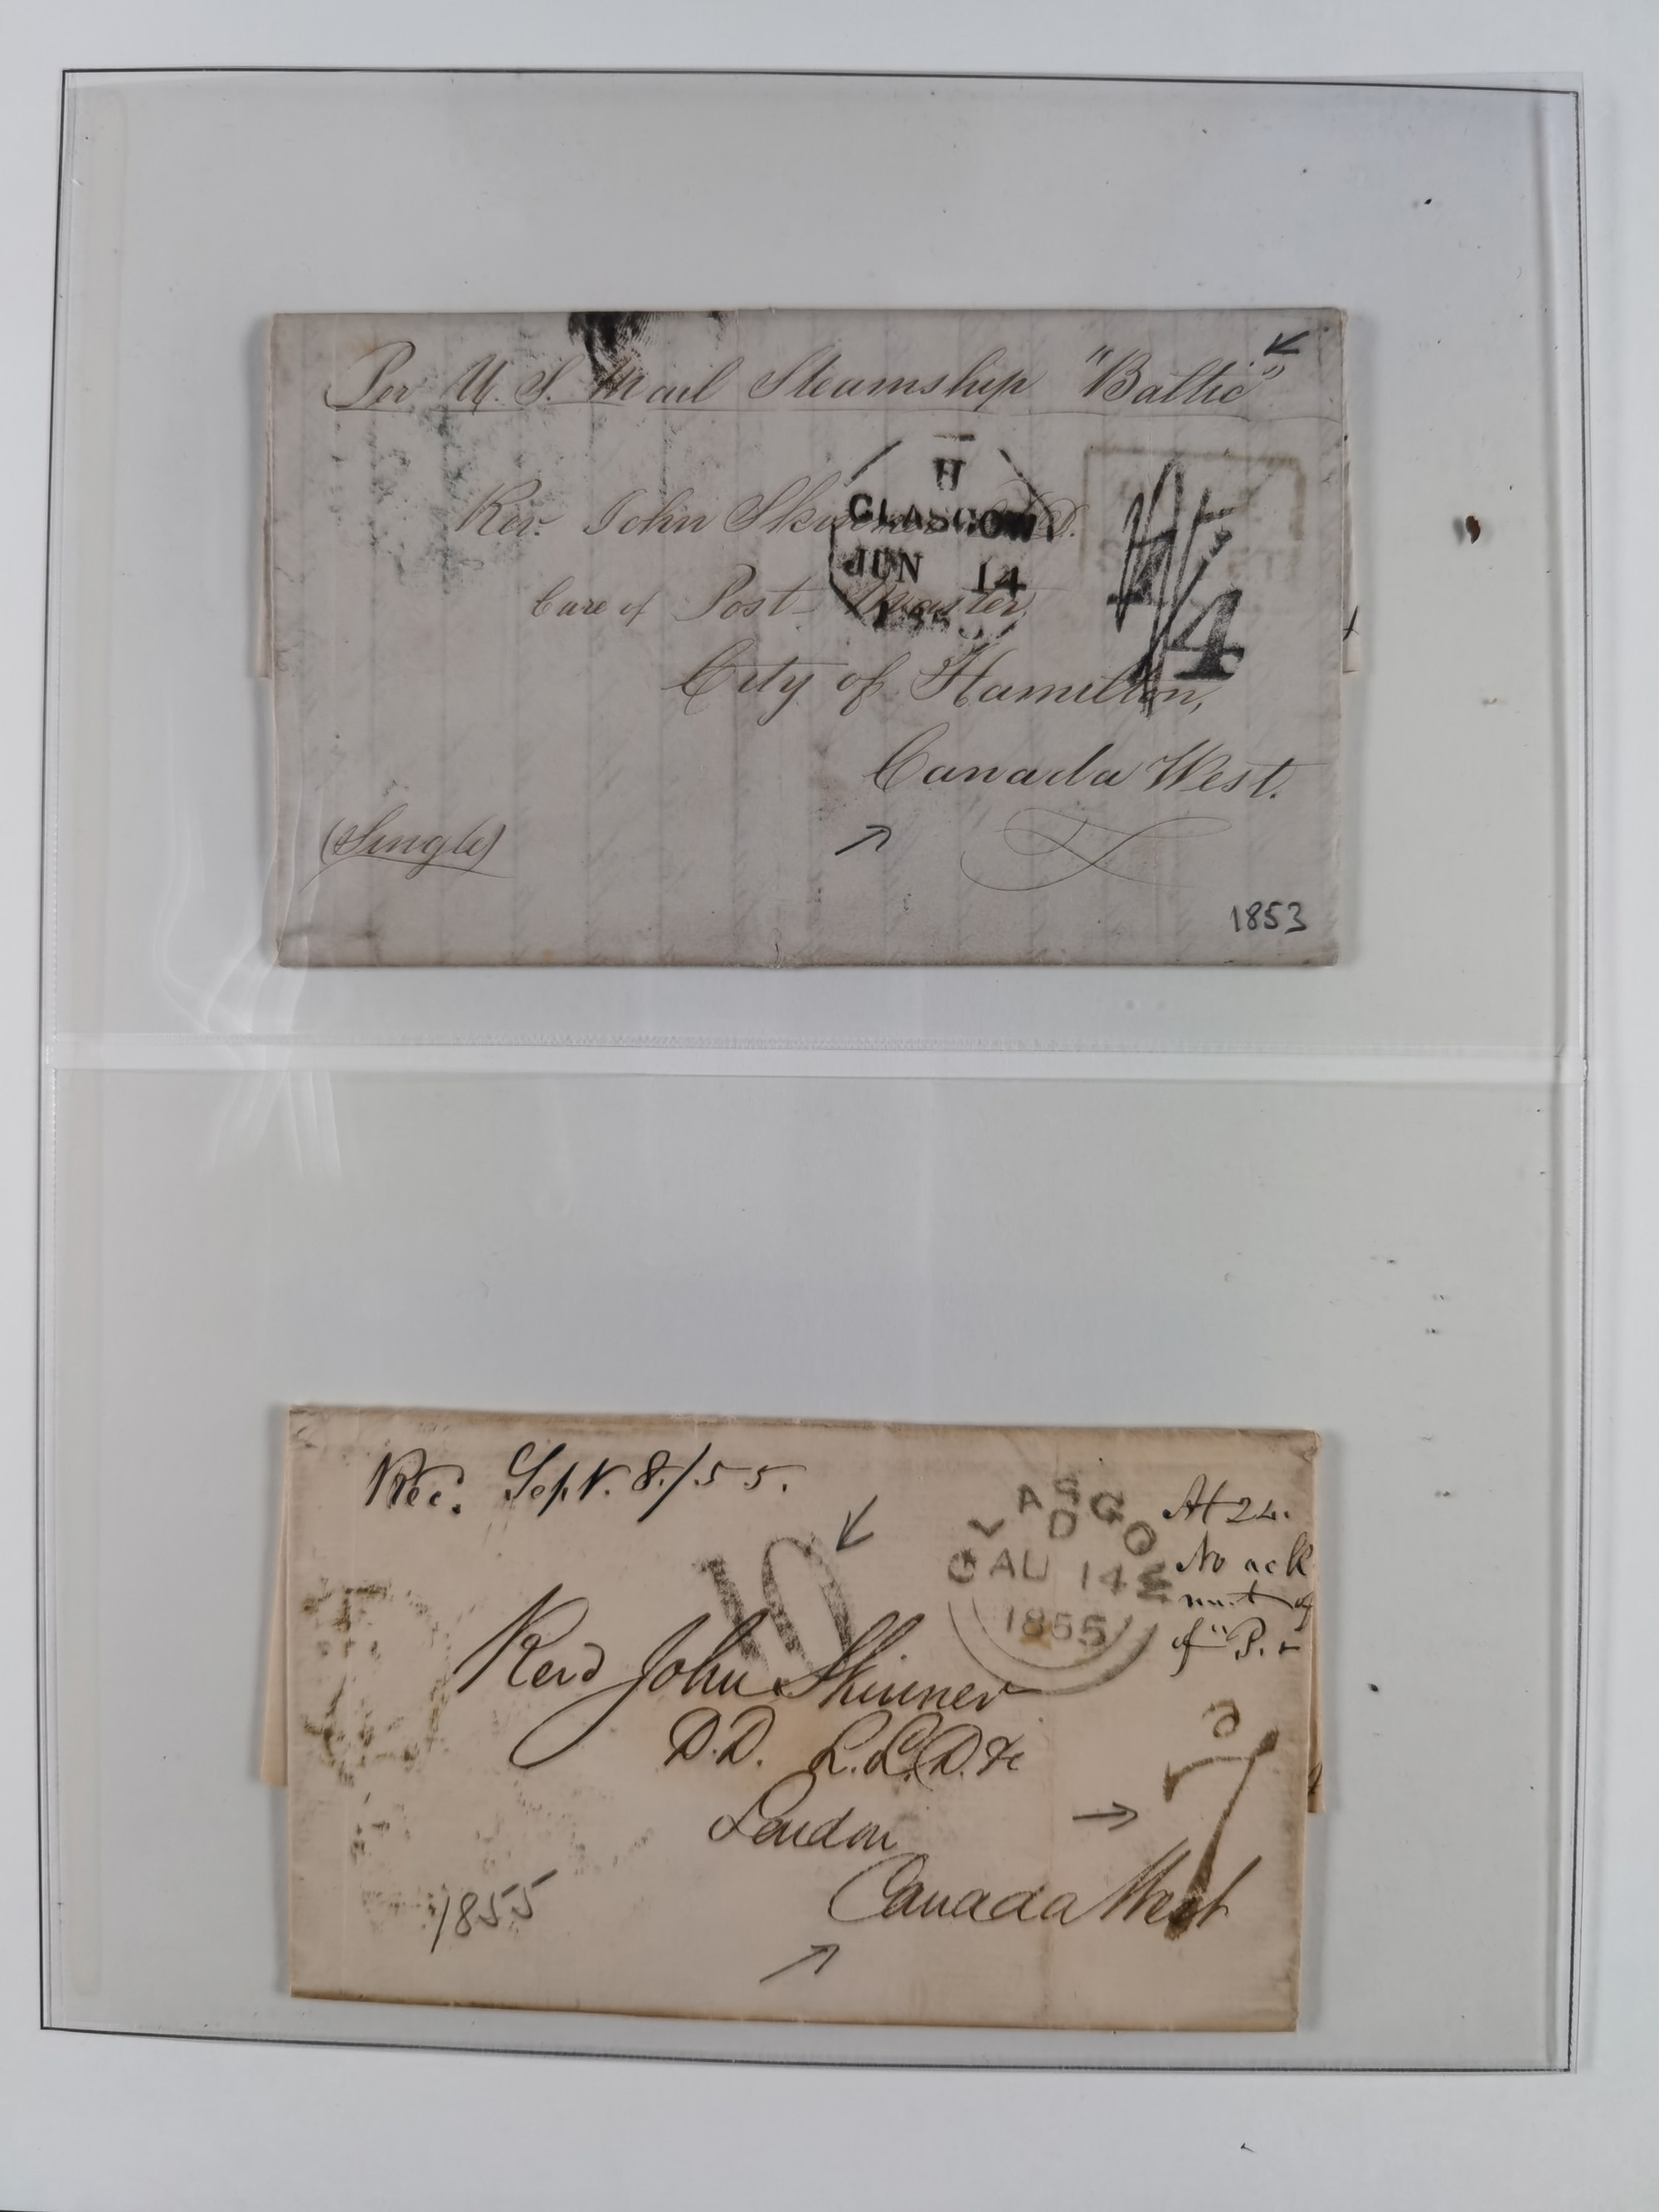 Per U. S. Mail Steamship "Baltic"
H
GLASGOW
JUN 14
Rev. John D.
Care of Post-Master,
City of Hamilton,
Canada West.
(Single)
1/4
1853
Rec. Sept. 8./55.
10
GLASGOW
D
AU 14
1855
At 24.
No ack
of "P.
Revd John Skinner
D.D. L.L.D. &c
London
Canada West
7
1855